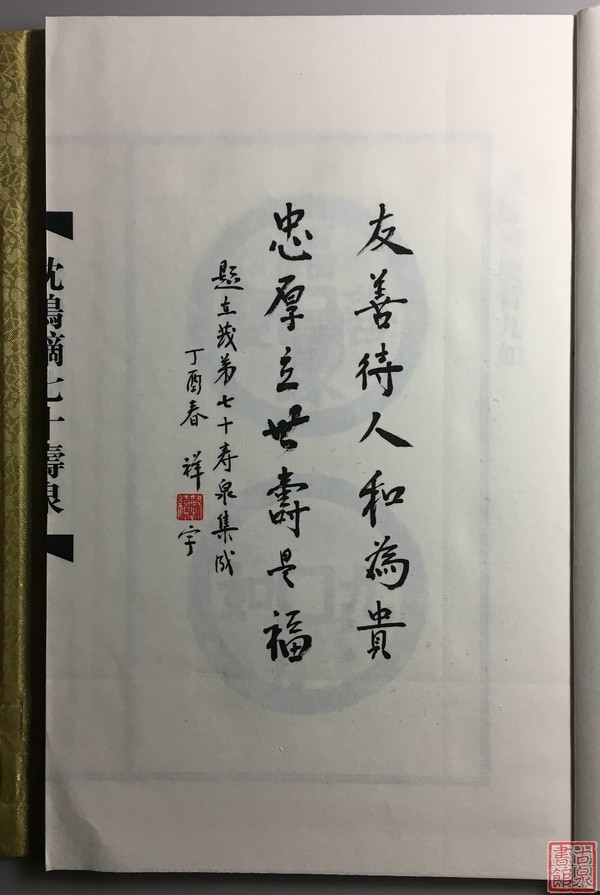 友善待人和為貴
忠厚立世壽是福
題立茂弟七十寿泉集成
丁酉春 祥宇
七十壽泉
尚泉書館